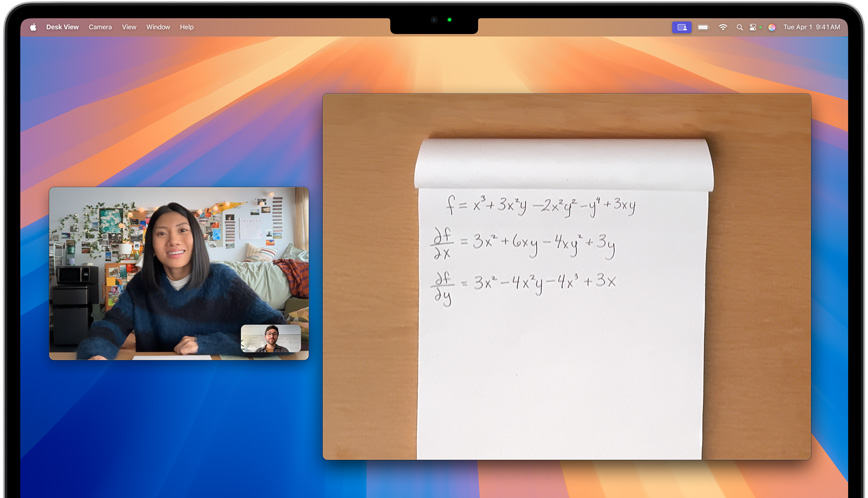 Desk View Camera View Window Help Tue Apr 1 9:41 AM
f = x³ + 3x²y − 2x²y² − y⁴ + 3xy
∂f/∂x = 3x² + 6xy − 4xy² + 3y
∂f/∂y = 3x² − 4x²y − 4x³ + 3x